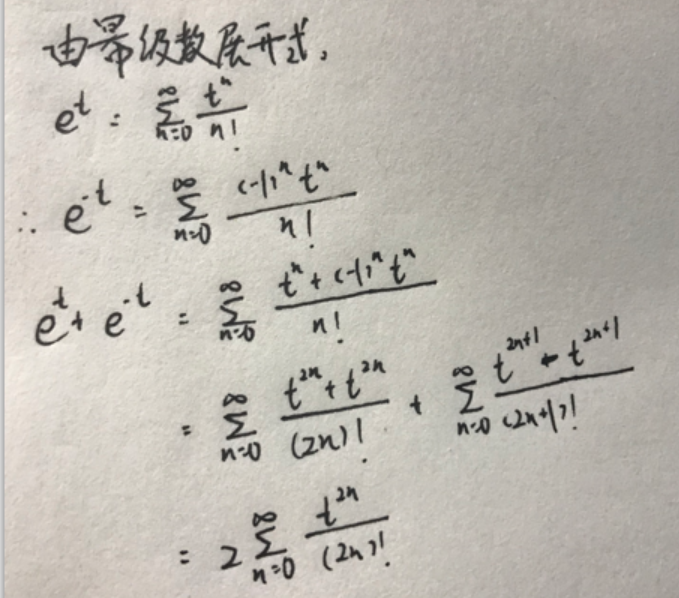 由幂级数展开式,
e^t = ∑_{n=0}^{∞} t^n / n!
∴ e^{-t} = ∑_{n=0}^{∞} (-1)^n t^n / n!
e^t + e^{-t} = ∑_{n=0}^{∞} (t^n + (-1)^n t^n) / n!
= ∑_{n=0}^{∞} (t^{2n} + t^{2n}) / (2n)! + ∑_{n=0}^{∞} (t^{2n+1} - t^{2n+1}) / (2n+1)!
= 2 ∑_{n=0}^{∞} t^{2n} / (2n)!